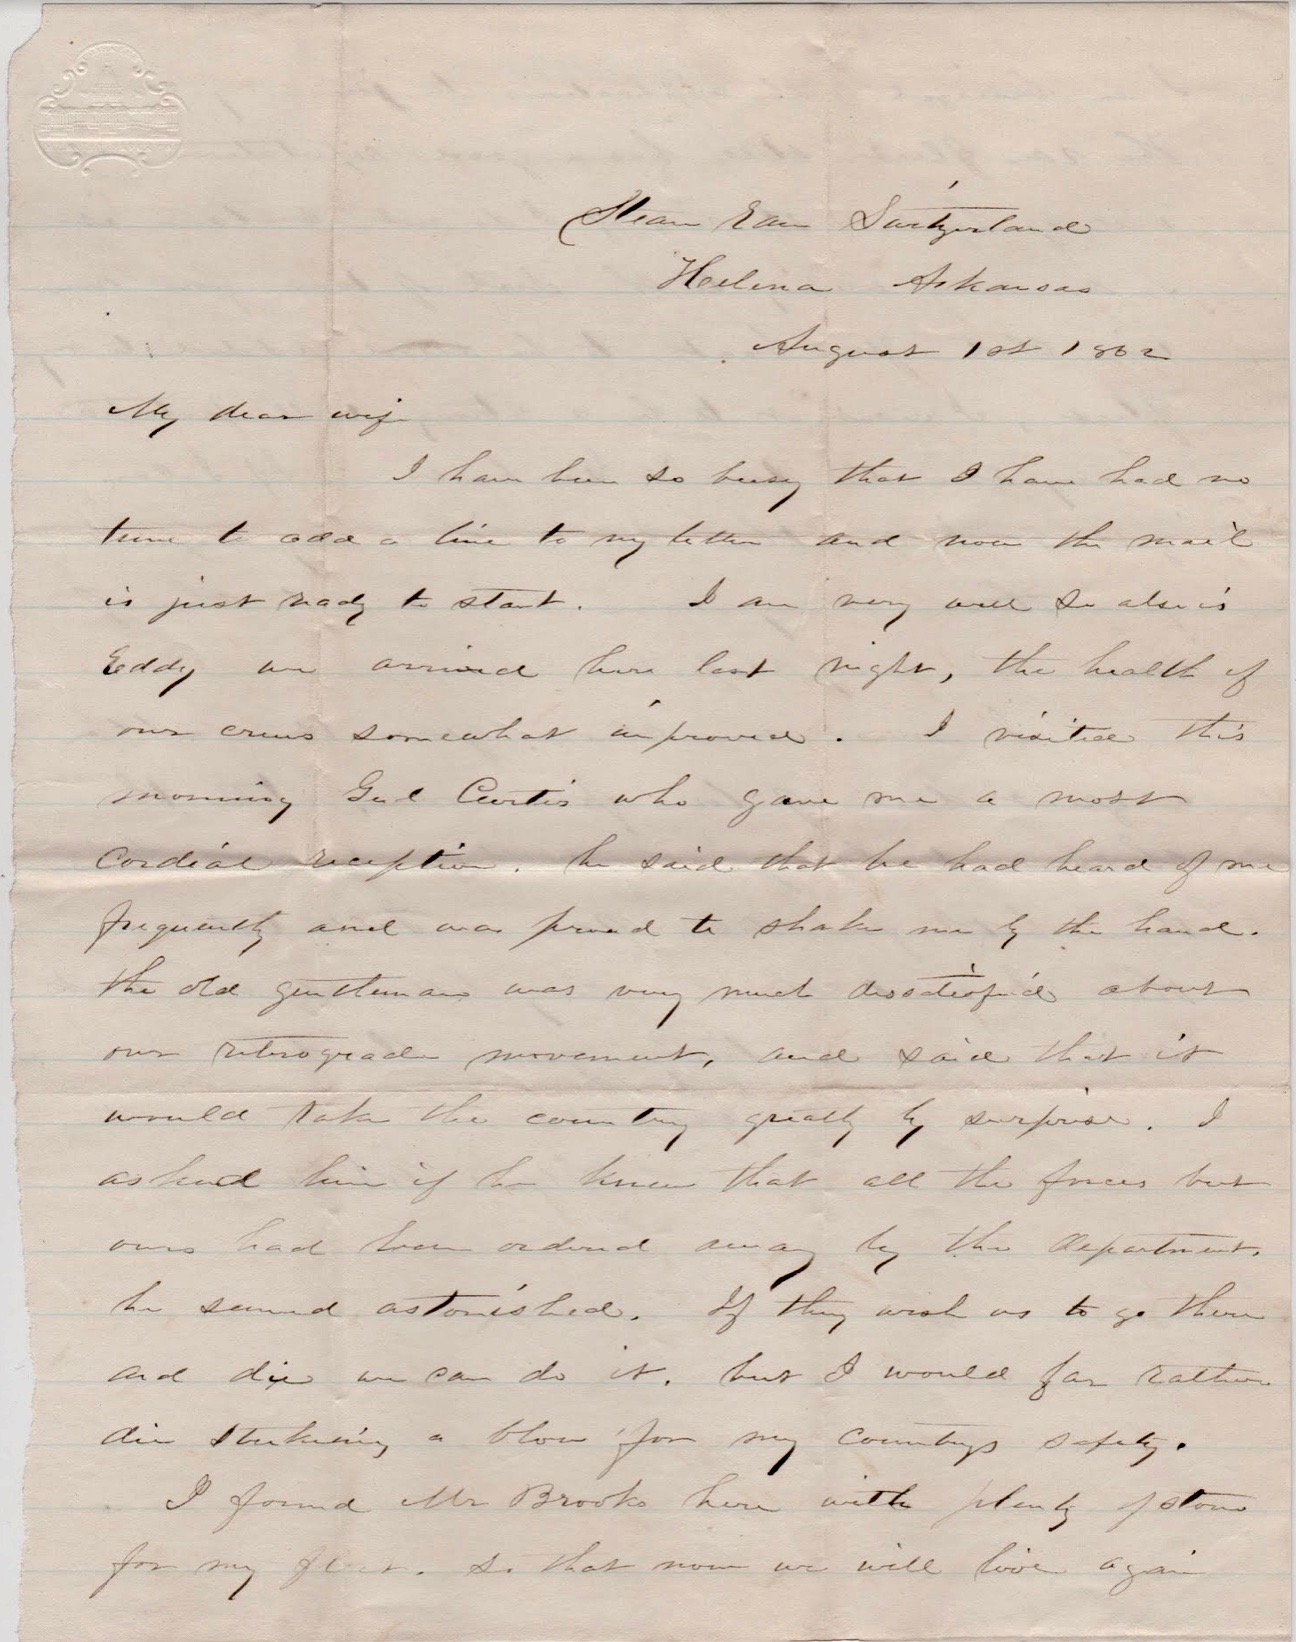 Steam Ram Switzerland
Helena Arkansas
August 1st 1862
My dear wife
I have been so busy that I have had no
time to add a line to my letter and now the mail
is just ready to start. I am very well so also is
Eddy we arrived here last night, the health of
our crews somewhat improved. I visited this
morning Genl Curtis who gave me a most
cordial reception. he said that he had heard of me
frequently and was proud to shake me by the hand.
the old gentleman was very much dissatisfied about
our retrograde movement, and said that it
would take the country greatly by surprise. I
asked him if he knew that all the forces but
ours had been ordered away by the department.
he seemed astonished. If they wish us to go there
and die we can do it. but I would far rather
die striking a blow for my countrys safety.
I found Mr Brooks here with plenty of stores
for my fleet. so that now we will live again